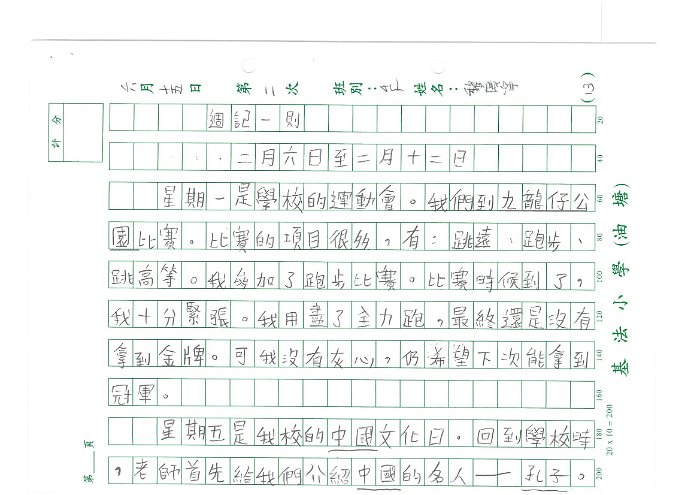 六月十五日 第二次 班別： 姓名： (13)
評分
週記一則 20
二月六日至二月十二日 40
星期一是學校的運動會。我們到九龍仔公 60
園比賽。比賽的項目很多，有：跳遠、跑步、 80
跳高等。我參加了跑步比賽。比賽時候到了， 100
我十分緊張。我用盡了全力跑，最終還是沒有 120
拿到金牌。可我沒有灰心，仍希望下次能拿到 140
冠軍。 160
星期五是我校的中國文化日。回到學校時 180
，老師首先給我們介紹中國的名人——孔子。 200
第＿頁
20 x 10 = 200
基法小學（油塘）